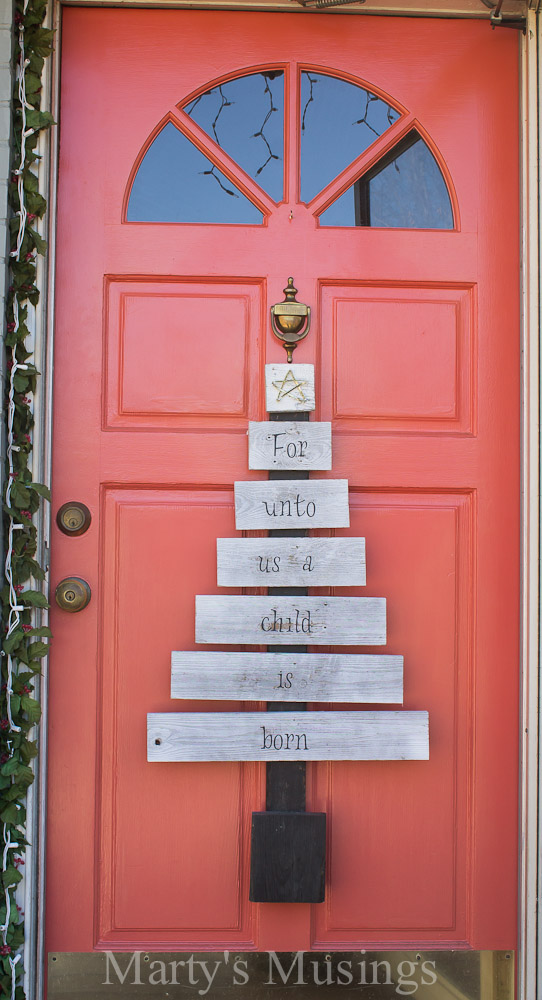 For
unto
us a
child
is
born
Marty's Musings